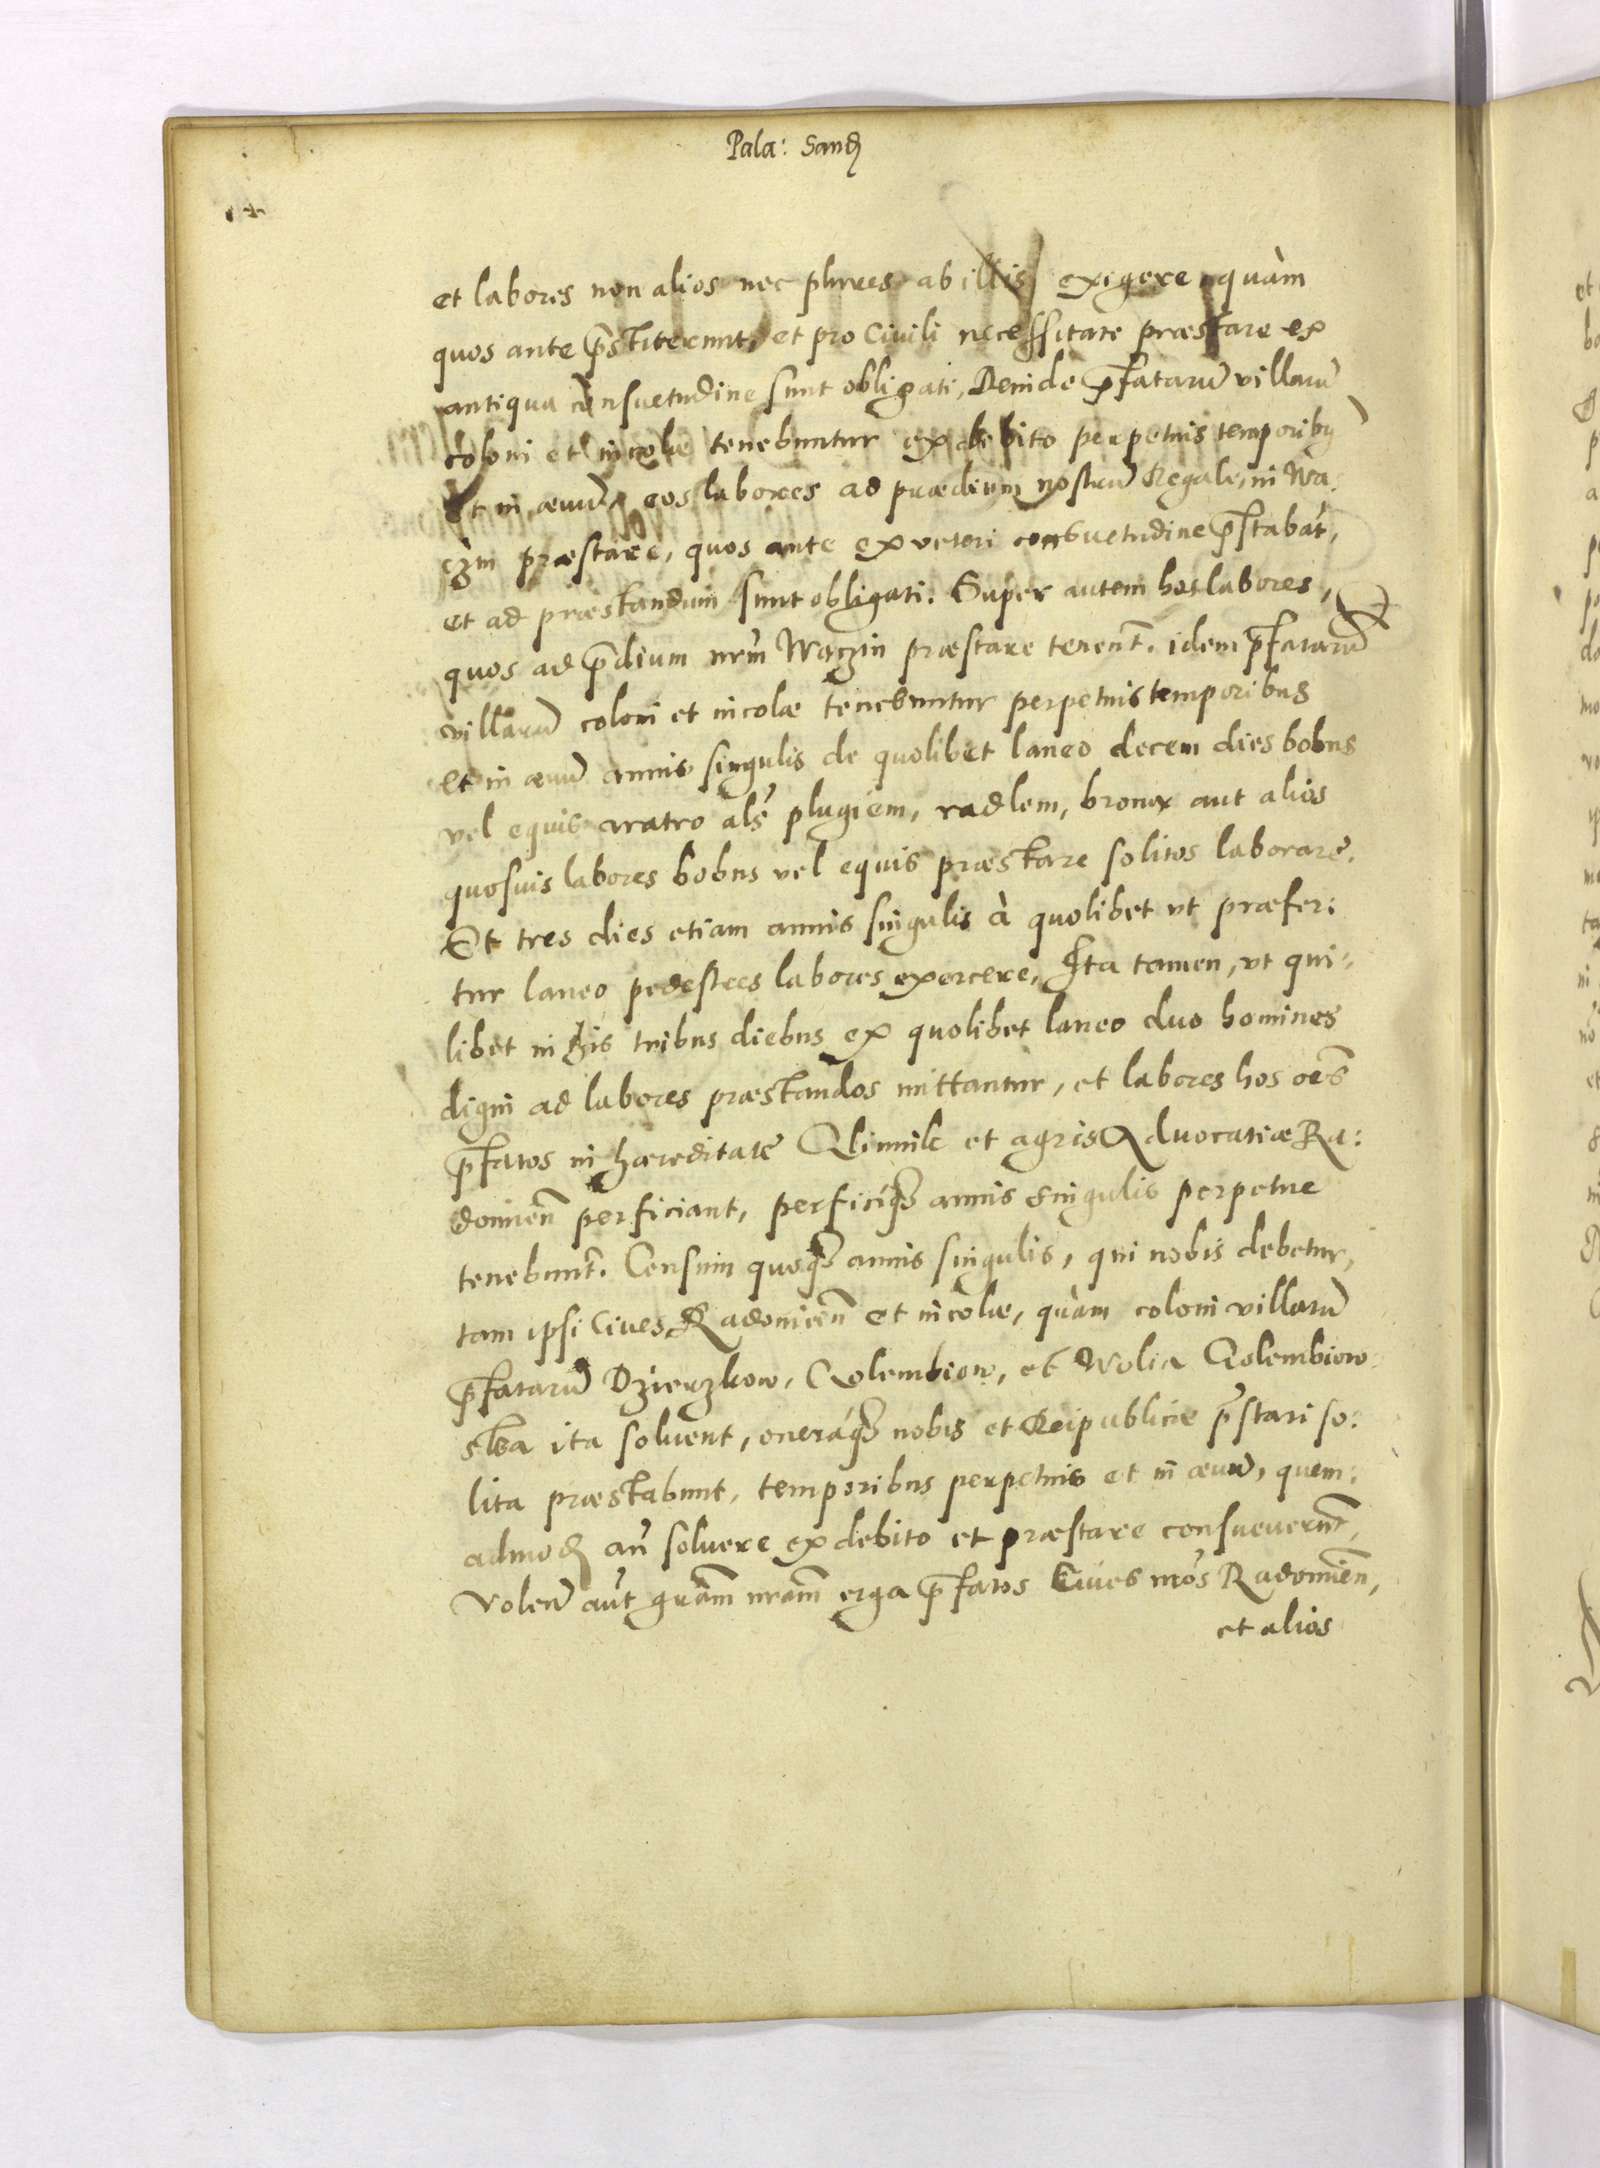 Pala: Sand
et labores non alios nec plures ab illis exigere quàm
quos ante p̄stiterunt, et pro Ciuili necessitate præstare ex
antiqua consuetudine sunt obligati, Deinde p̄fatarū villarū
coloni et incolæ tenebuntur ex debito perpetuis temporibꝰ
et in æuū eos labores ad prædium nostrū Regale, in Wa:
czin præstare, quos ante ex veteri consuetudine p̄stabāt,
et ad præstandum sunt obligati. Super autem hos labores,
quos ad p̄dium nrm̄ Waczin præstare tenent̄. idem p̄fatarū
villarū coloni et incolæ tenebuntur perpetuis temporibus
et in æuū annis singulis de quolibet laneo decem dies bobus
vel equis aratro als̄ plugiem, radlem, brona aut alios
quosuis labores bobus vel equis præstare solitos laborare.
Et tres dies etiam annis singulis à quolibet vt præfer:
tur laneo pedestres labores exercere, Ita tamen, vt qui:
libet in his tribus diebus ex quolibet laneo duo homines
digni ad labores præstandos mittantur, et labores hos oēs
p̄fatos in hæreditate Qlimile et agris Aduocatiæ Ra:
domien̄ perficiant, perficiq́ꝫ annis singulis perpetue
tenebunt̄. Censum quoqꝫ annis singulis, qui nobis debetur,
tam ipsi Ciues Radomien̄ et incolæ, quàm coloni villarū
p̄fatarū Dzierzkow, Golembiow, et Wolia Golembiow:
ska ita soluent, oneráqꝫ nobis et Reipublicæ p̄stari so:
lita præstabunt, temporibus perpetuis et in æuū, quem:
admod an̄ soluere ex debito et præstare consueuerunt̄,
Volen̄ aūt grām nrām erga p̄fatos Ciues nrōs Radomien̄,
et alios